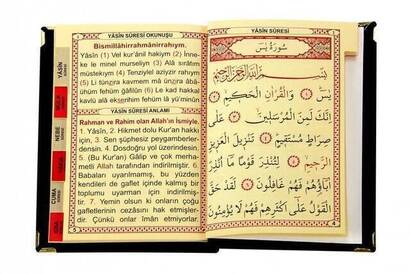 YÂSİN SÛRESİ OKUNUŞU
Bismillâhirrahmânirrahıym.
Yâsîn (1) Vel kur'ânil hakiym (2) İnne-
ke le minel murseliyn (3) Alâ sırâtım
müstekıym (4) Tenziylel aziyzir rahym
(5) Li tünzira kavmem mâ ünzira âbâ-
ühüm fehüm ğâfilûn (6) Le kad hakkal
kavlü alâ ekserihim fehüm lâ yü'minûn
YÂSİN SÛRESİ ANLAMI
Rahman ve Rahim olan Allah'ın İsmiyle.
1. Yâsîn, 2. Hikmet dolu Kur'an hakkı
için, 3. Sen şüphesiz peygamberler-
densin. 4. Dosdoğru yol üzerindesin.
5. (Bu Kur'an) Gâlip ve çok merha-
metli Allah tarafından indirilmiştir. 6.
Babaları uyarılmamış, bu yüzden
kendileri de gaflet içinde kalmış bir
toplumu uyarman için indirilmiş-
tir. 7. Yemin olsun ki onların çoğu
gafletlerinin cezasını hak etmişler-
dir. Çünkü onlar îman etmiyorlar.
5
YÂSİN
NEBE
CUMA
YÂSİN SÛRESİ
سُورَةُ يٰسٓ
بِسْمِ اللّٰهِ الرَّحْمٰنِ الرَّحِيمِ
يٰسٓ ﴿١﴾ وَالْقُرْاٰنِ الْحَكِيمِ ﴿٢﴾
اِنَّكَ لَمِنَ الْمُرْسَلِينَ ﴿٣﴾ عَلٰى
صِرَاطٍ مُسْتَقِيمٍ ﴿٤﴾ تَنْزِيلَ الْعَزِيزِ
الرَّحِيمِ ﴿٥﴾ لِتُنْذِرَ قَوْمًا مَا اُنْذِرَ
اٰبَاؤُهُمْ فَهُمْ غَافِلُونَ ﴿٦﴾ لَقَدْ حَقَّ
الْقَوْلُ عَلٰى اَكْثَرِهِمْ فَهُمْ لَا يُؤْمِنُونَ
4